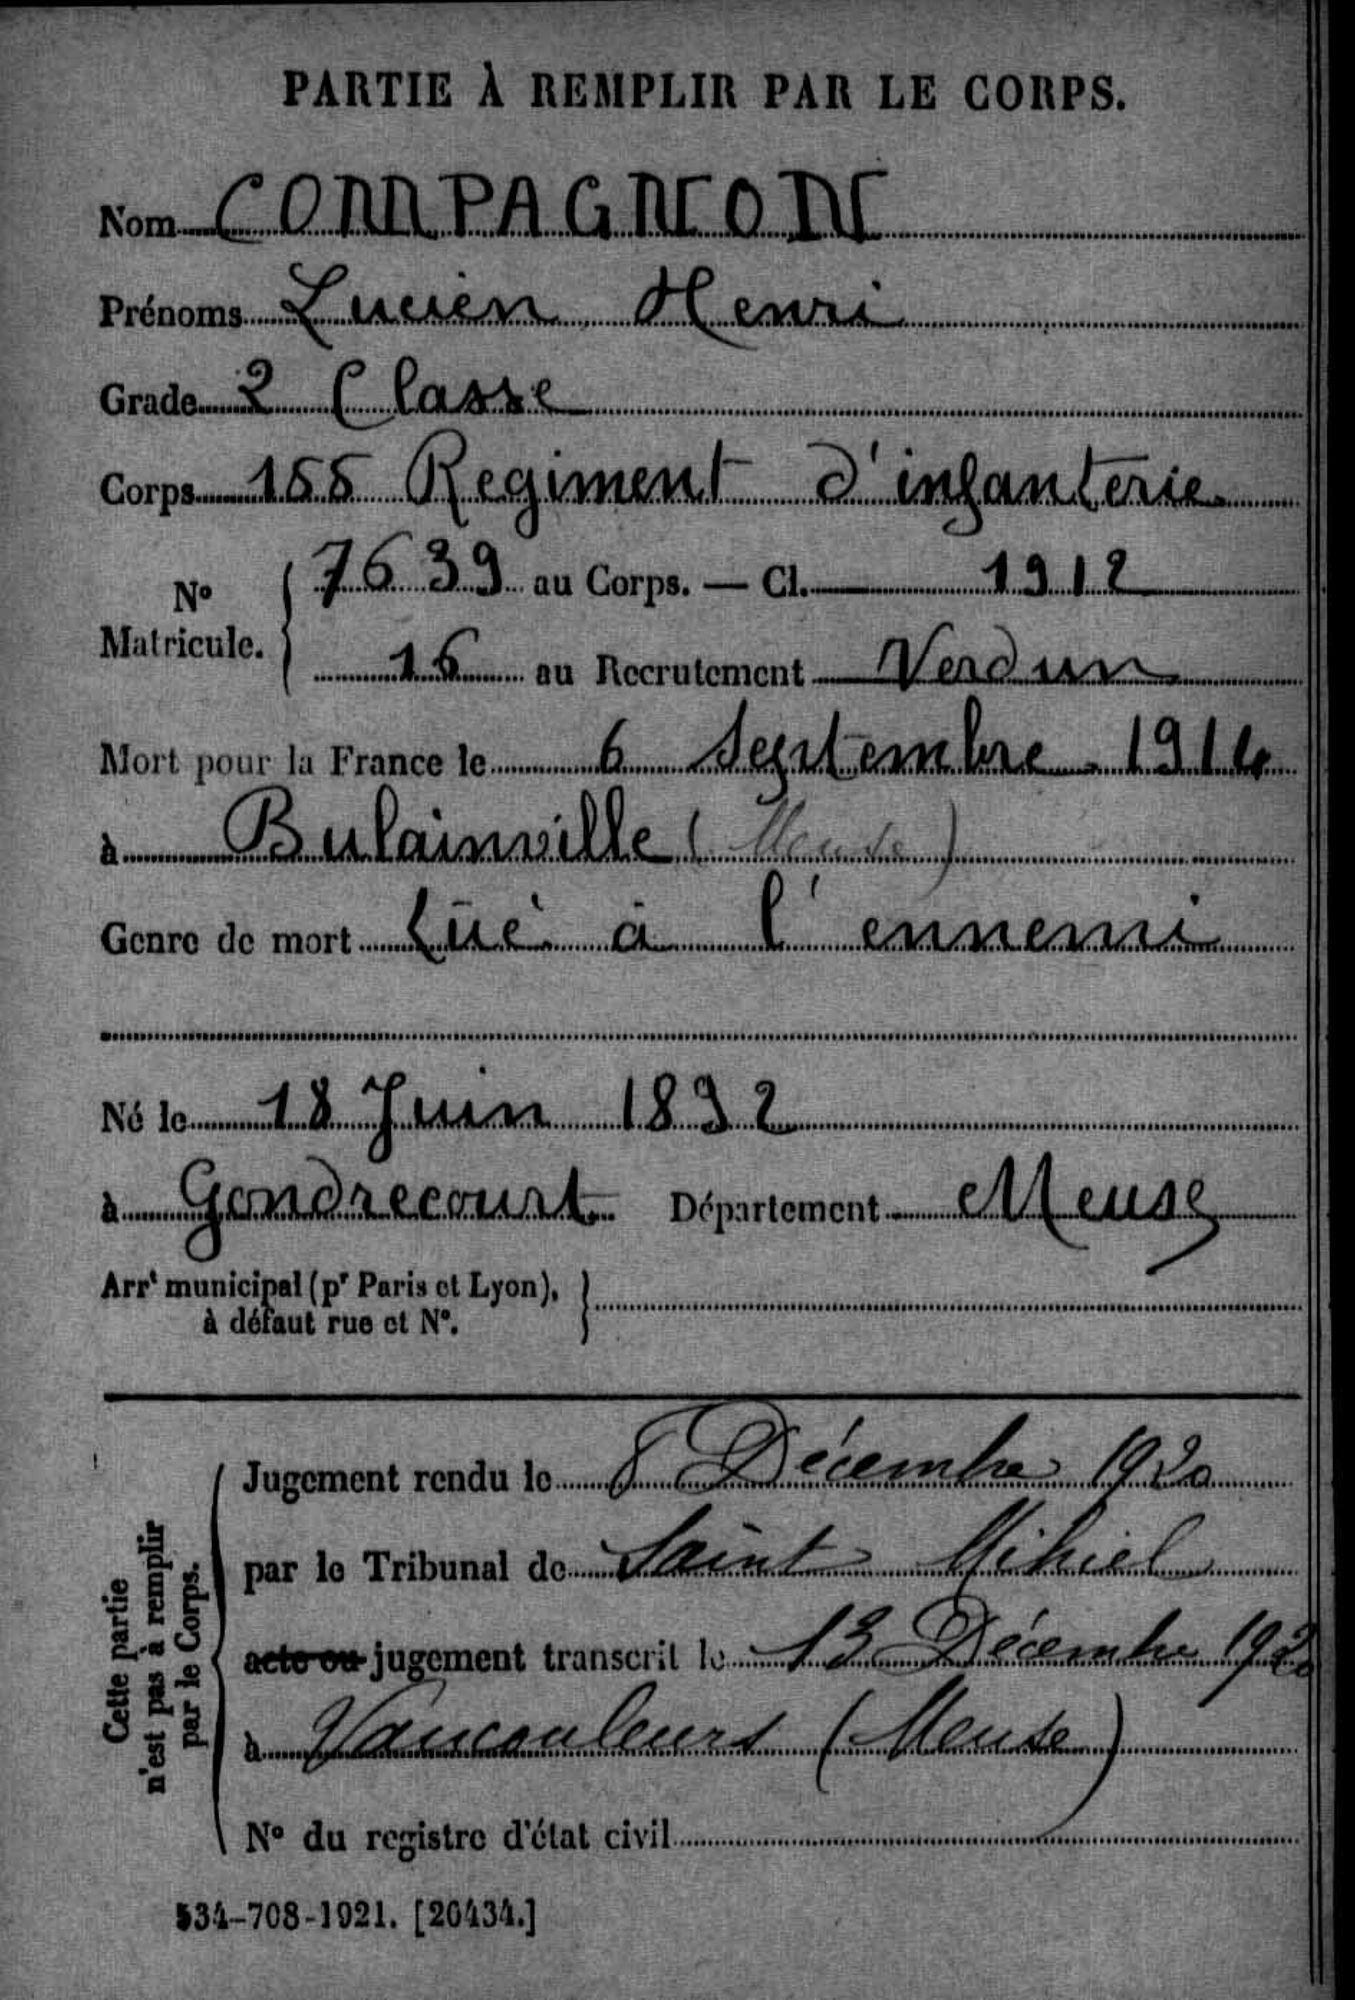 PARTIE À REMPLIR PAR LE CORPS.
Nom COMPAGNON
Prénoms Lucien Henri
Grade 2 Classe
Corps 155 Regiment d'infanterie
N° Matricule. 7639 au Corps. — Cl. 1912
16 au Recrutement Verdun
Mort pour la France le 6 Septembre 1914
à Bulainville (Meuse)
Genre de mort tué à l'ennemi
Né le 18 Juin 1892
à Gondrecourt Département Meuse
Arrt municipal (pr Paris et Lyon),
à défaut rue et N°.
Cette partie
n'est pas à remplir
par le Corps.
Jugement rendu le 8 Décembre 1920
par le Tribunal de Saint Mihiel
acte ou jugement transcrit le 13 Décembre 1920
à Vaucouleurs (Meuse)
N° du registre d'état civil
534-708-1921. [20434.]